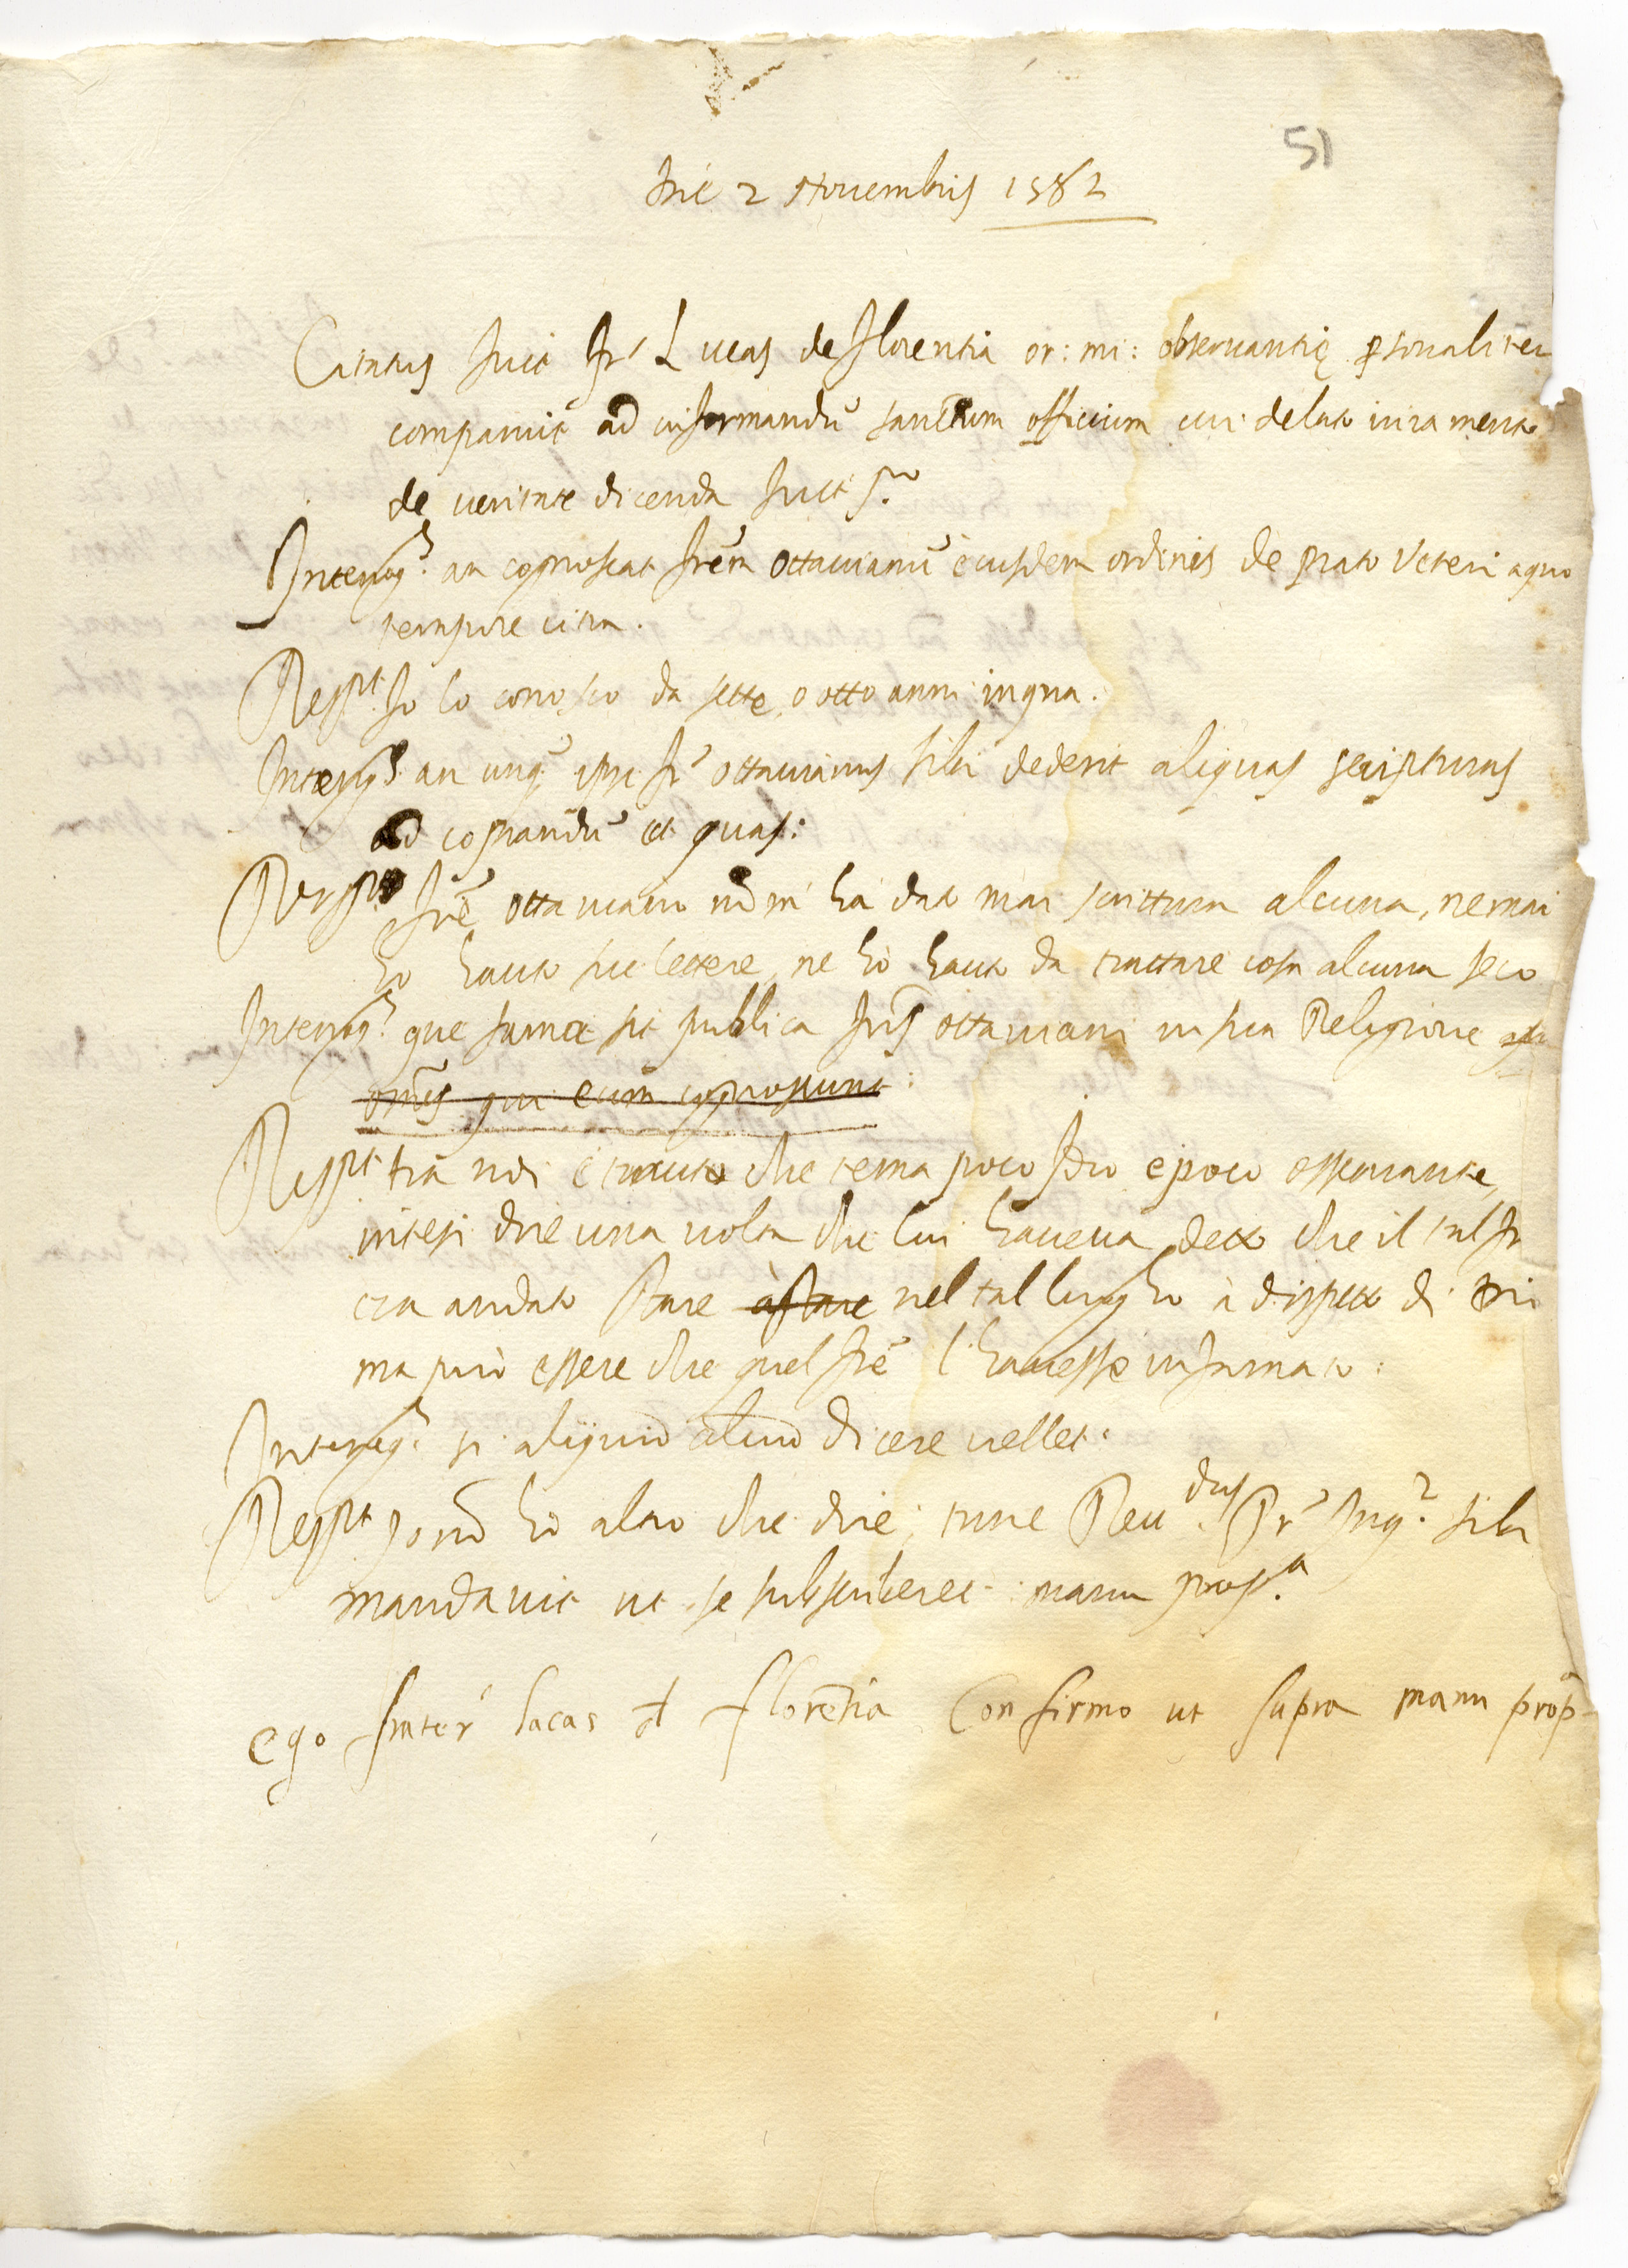 51
Die 2 Novembris 1582
Citatus fuit fr' Lucas de florentia or: mi: observantię psonaliter
comparuit ad informandū sanctum officium cui delato iuramento
de veritate dicenda fuit
Interrog.s an cognoscat frēm Ottavianū eiusdem ordinis de prato Veteri a quo
tempore citra.
Resp.t Io lo conosco da sette, o otto anni in qua.
Interog.s an unq̃ ipse fr' ottavianus sibi dederit aliquas scripturas
ad copiandū et quas:
Resp.t frē ottaviano nō m' ha dato mai scrittura alcuna, ne mai
ho hauto sue lettere, ne hò hauto da trattare cosa alcuna seco
Interrog.s que fama sit publica fr̄is ottaviani in sua Religione
om̄es qui eum cognoscunt:
Resp.t frà noi è tenuto che tema poco Idio e poco osservante,
intesi dire una volta che lui haveva detto che il tal fr
era andato stare à stare nel tal luogho à dispetto di
ma può essere che quel frē l'havesse infamato:
Interrog.s si aliquid aliud dicere vellet.
Resp.t Io nō hò altro che dire; tunc Reu.dus Pr' Inq.r sibi
mandavit ut se subscriberet manu prop.a
ego frater' lucas d florētia Confirmo ut supra manu prop̄